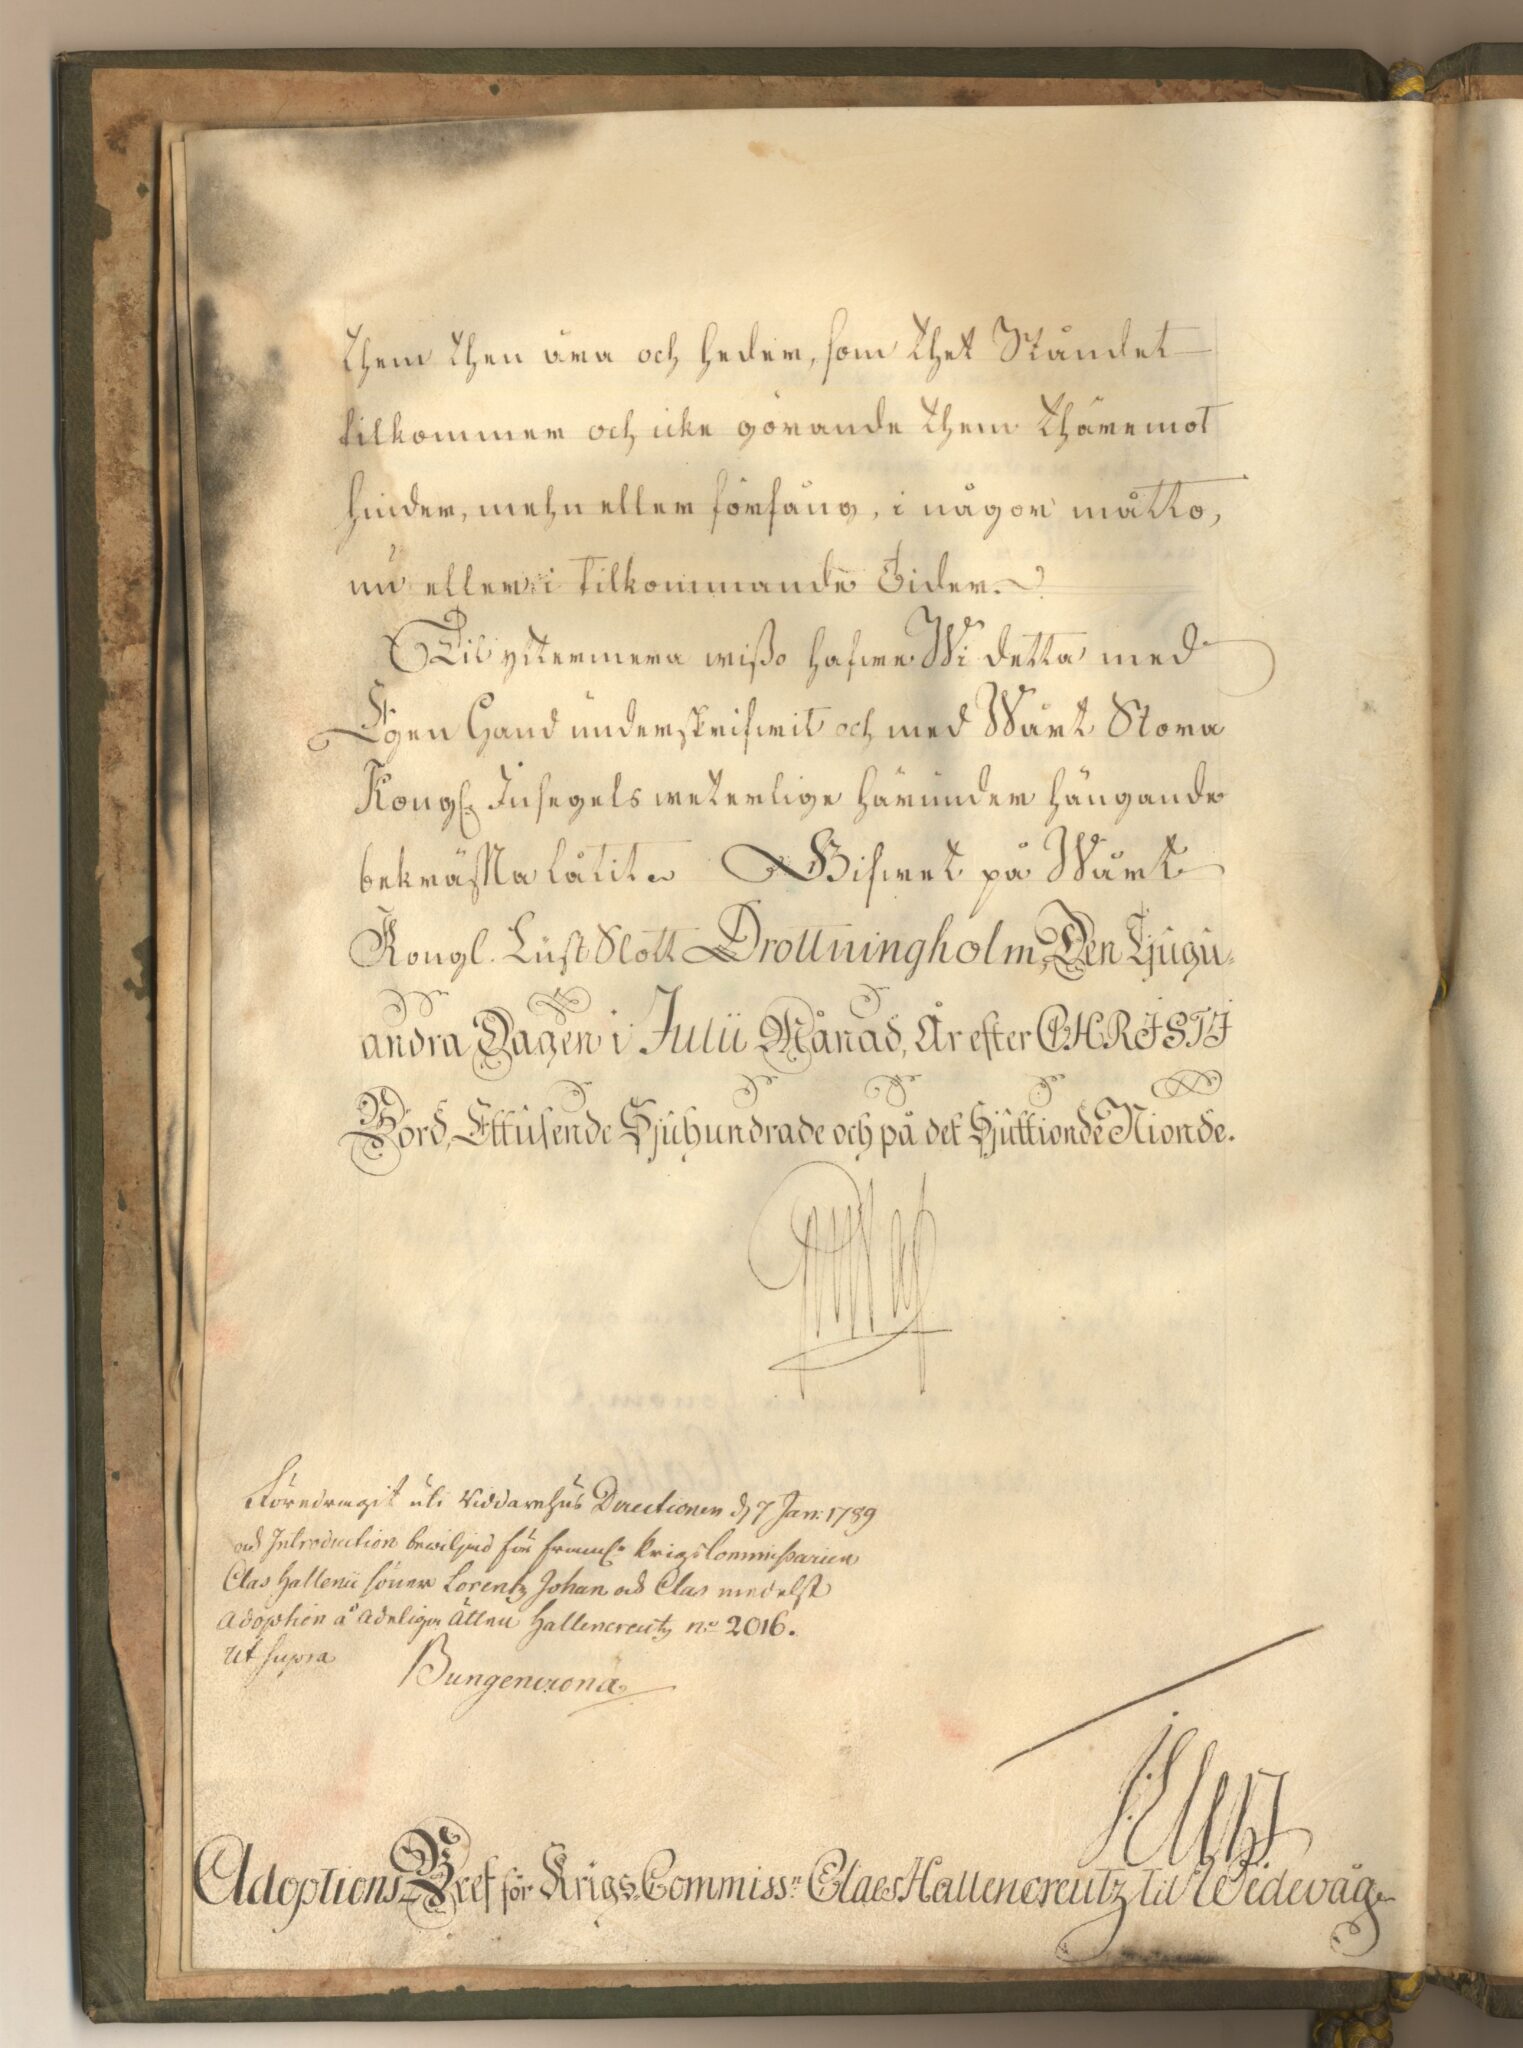 them then ära och heder, som thet Ståndet
tilkommer och icke görande them thäremot
hinder, mehn eller förfång, i någor måtto,
nu eller i tilkommande Tider.
Til yttermera wißo hafwe Wi detta med
Egen Hand underskrifwit och med Wårt Stora
Kongl. Insegels weterlige härunder hängande
bekräffta låtit. Gifwet på Wårt
Kongl. Lust Slott Drottningholm, Den Tjugu-
andra Dagen i Julii Månad, År efter CHRISTI
Börd, Ettusende Sjuhundrade och på det Sjuttionde Nionde.
Gustaf
Föredragit uti Riddarehus Directionen d 7 Jan: 1789
och Introduction beviljad för framl. KrigsCommissarien
Clas Hallenii söner Lorentz Johan och Clas medelst
Adoption å Adeliga Ätten Hallencreutz no 2016.
ut supra
Bungencrona
Adoptions Bref för Krigs Commiss:n Claes Hallencreutz til Widevåg